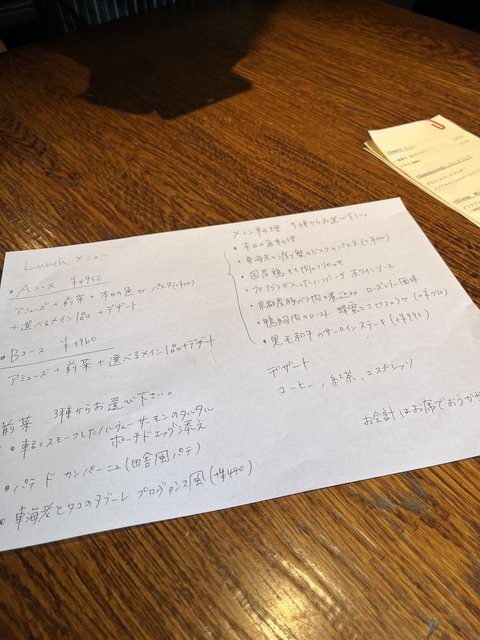 Lunch メニュー
・Aコース ¥4950
アミューズ + 前菜 + 本日の魚 or パスタ
+ 選べるメイン1品 + デザート
・Bコース ¥3960
アミューズ + 前菜 + 選べるメイン1品 + デザート
前菜 3種からお選び下さい。
・軽くスモークしたノルウェーサーモンのタルタル
ポーチドエッグ添え
・パテ ド カンパーニュ (田舎風パテ)
・車海老とタコのタブーレ プロヴァンス風 (+¥440)
メイン料理 7種からお選び下さい。
・本日の魚料理
・車海老と渡り蟹のビスクのパスタ
・国産鶏もも肉のフリカッセ
・フォアグラが入ったハンバーグ 赤ワインソース
・京都産豚バラ肉の煮込み ローズマリー風味
・鴨胸肉のロースト 蜂蜜と
・黒毛和牛のサーロインステーキ (+¥990)
デザート
コーヒー, 紅茶, エスプレッソ
お会計はお席でおうか